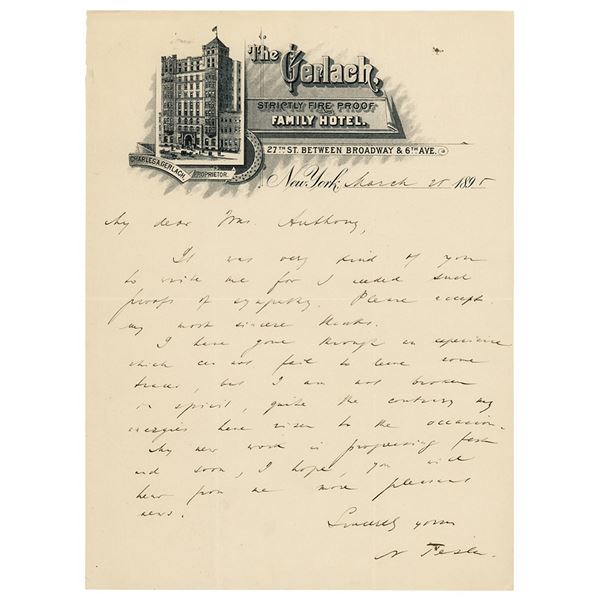 The Gerlach,
STRICTLY FIRE PROOF
FAMILY HOTEL.
27TH ST. BETWEEN BROADWAY & 6TH AVE.
CHARLES A. GERLACH, PROPRIETOR.
New York, March 25 1895
My dear Mrs. Anthony,
It was very kind of you
to write me for I needed such
proofs of sympathy. Please accept
my most sincere thanks.
I have gone through an experience
which can not fail to leave some
traces, but I am not broken
in spirit, quite the contrary my
energies have risen to the occasion.
My new work is progressing fast
and soon, I hope, you will
hear from me more pleasant
news.
Sincerely yours
N Tesla.